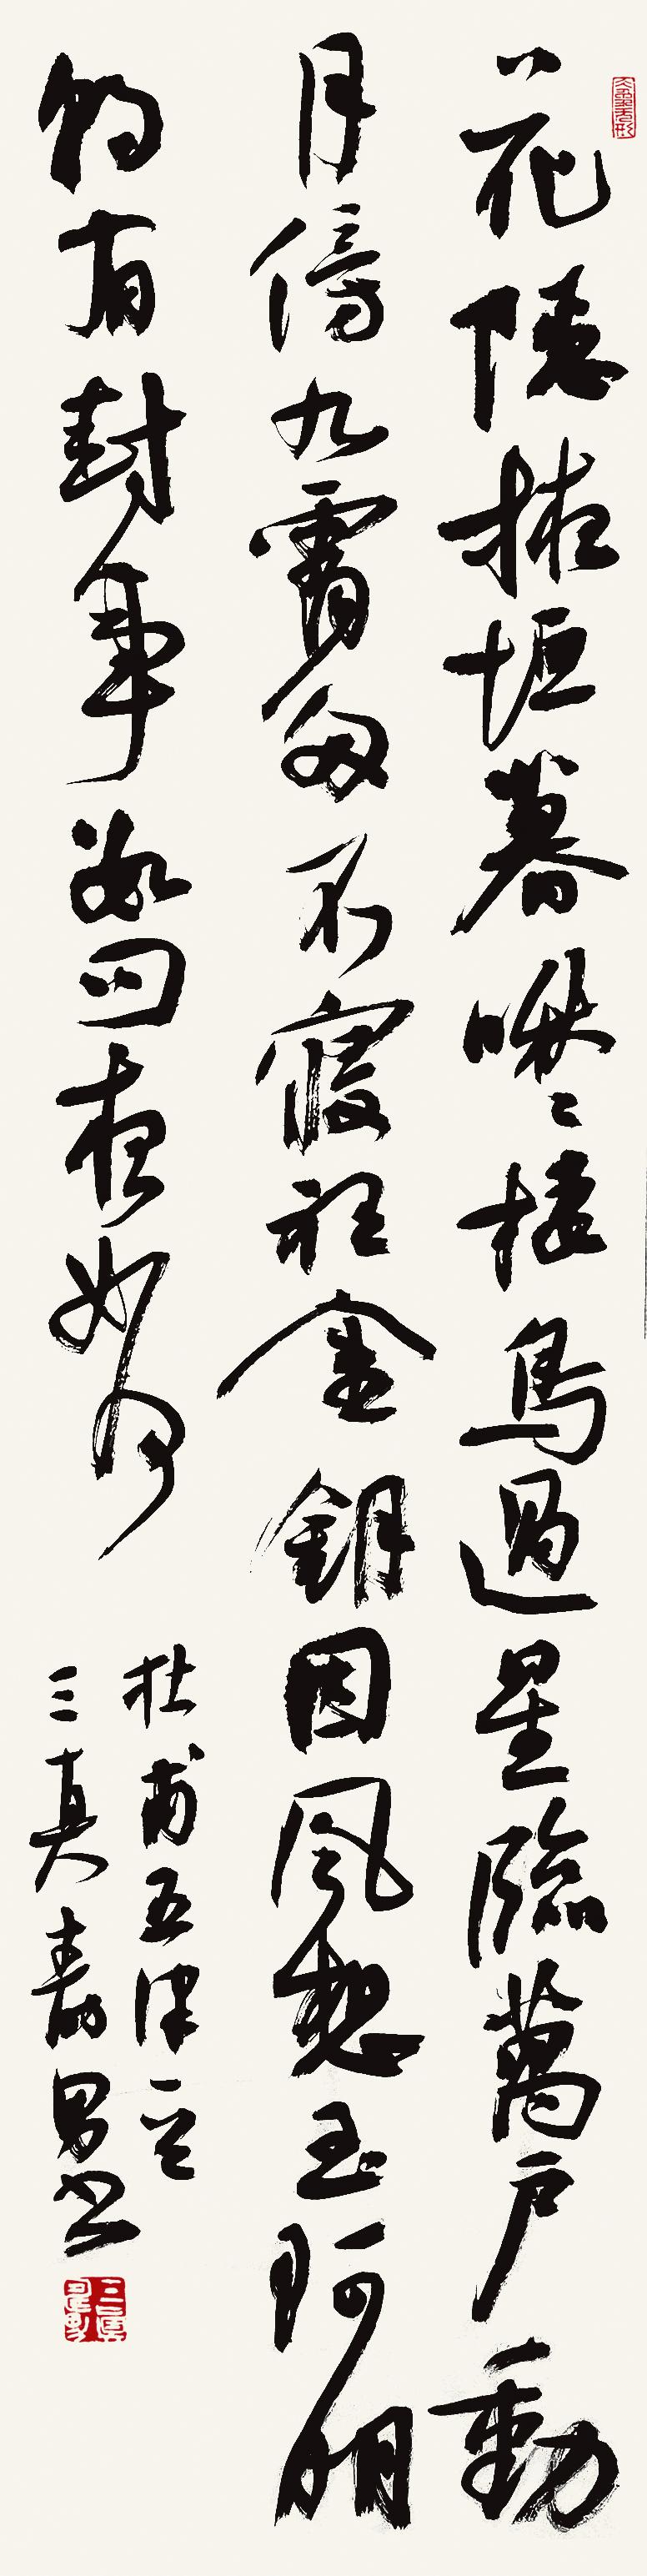 花隱掖垣暮啾々棲鳥過星臨萬戶動
月傍九霄多不寢聽金鈅因風想玉珂明
朝有封事數問夜如何
杜甫五律一首
三真男书